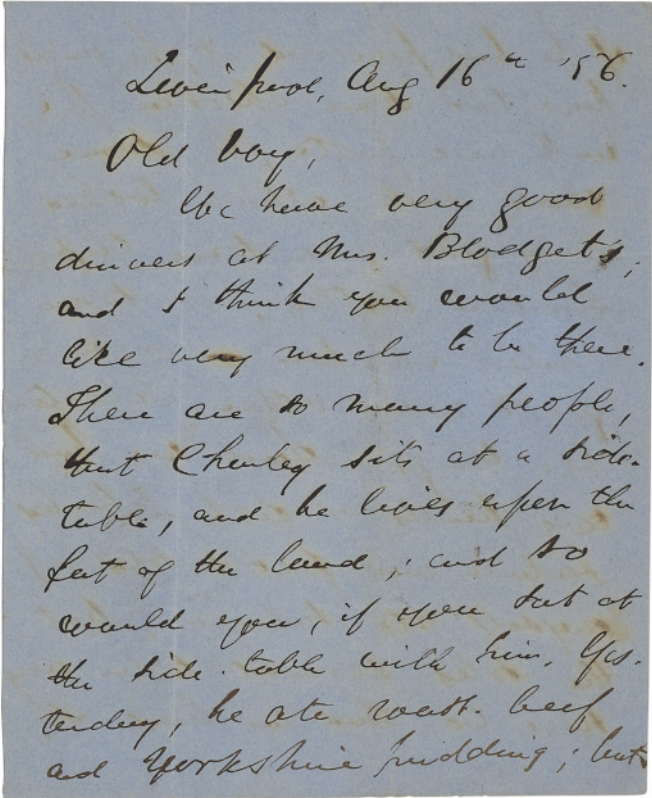 Liverpool, Aug 16th '56.
Old boy,
We have very good
dinners at Mrs. Blodget's,
and I think you would
like very much to be there.
There are so many people,
that Charley sits at a side-
table, and he lives upon the
fat of the land; and so
would you, if you sat at
the side-table with him. Yes-
terday, he ate roast-beef
and Yorkshire pudding; but